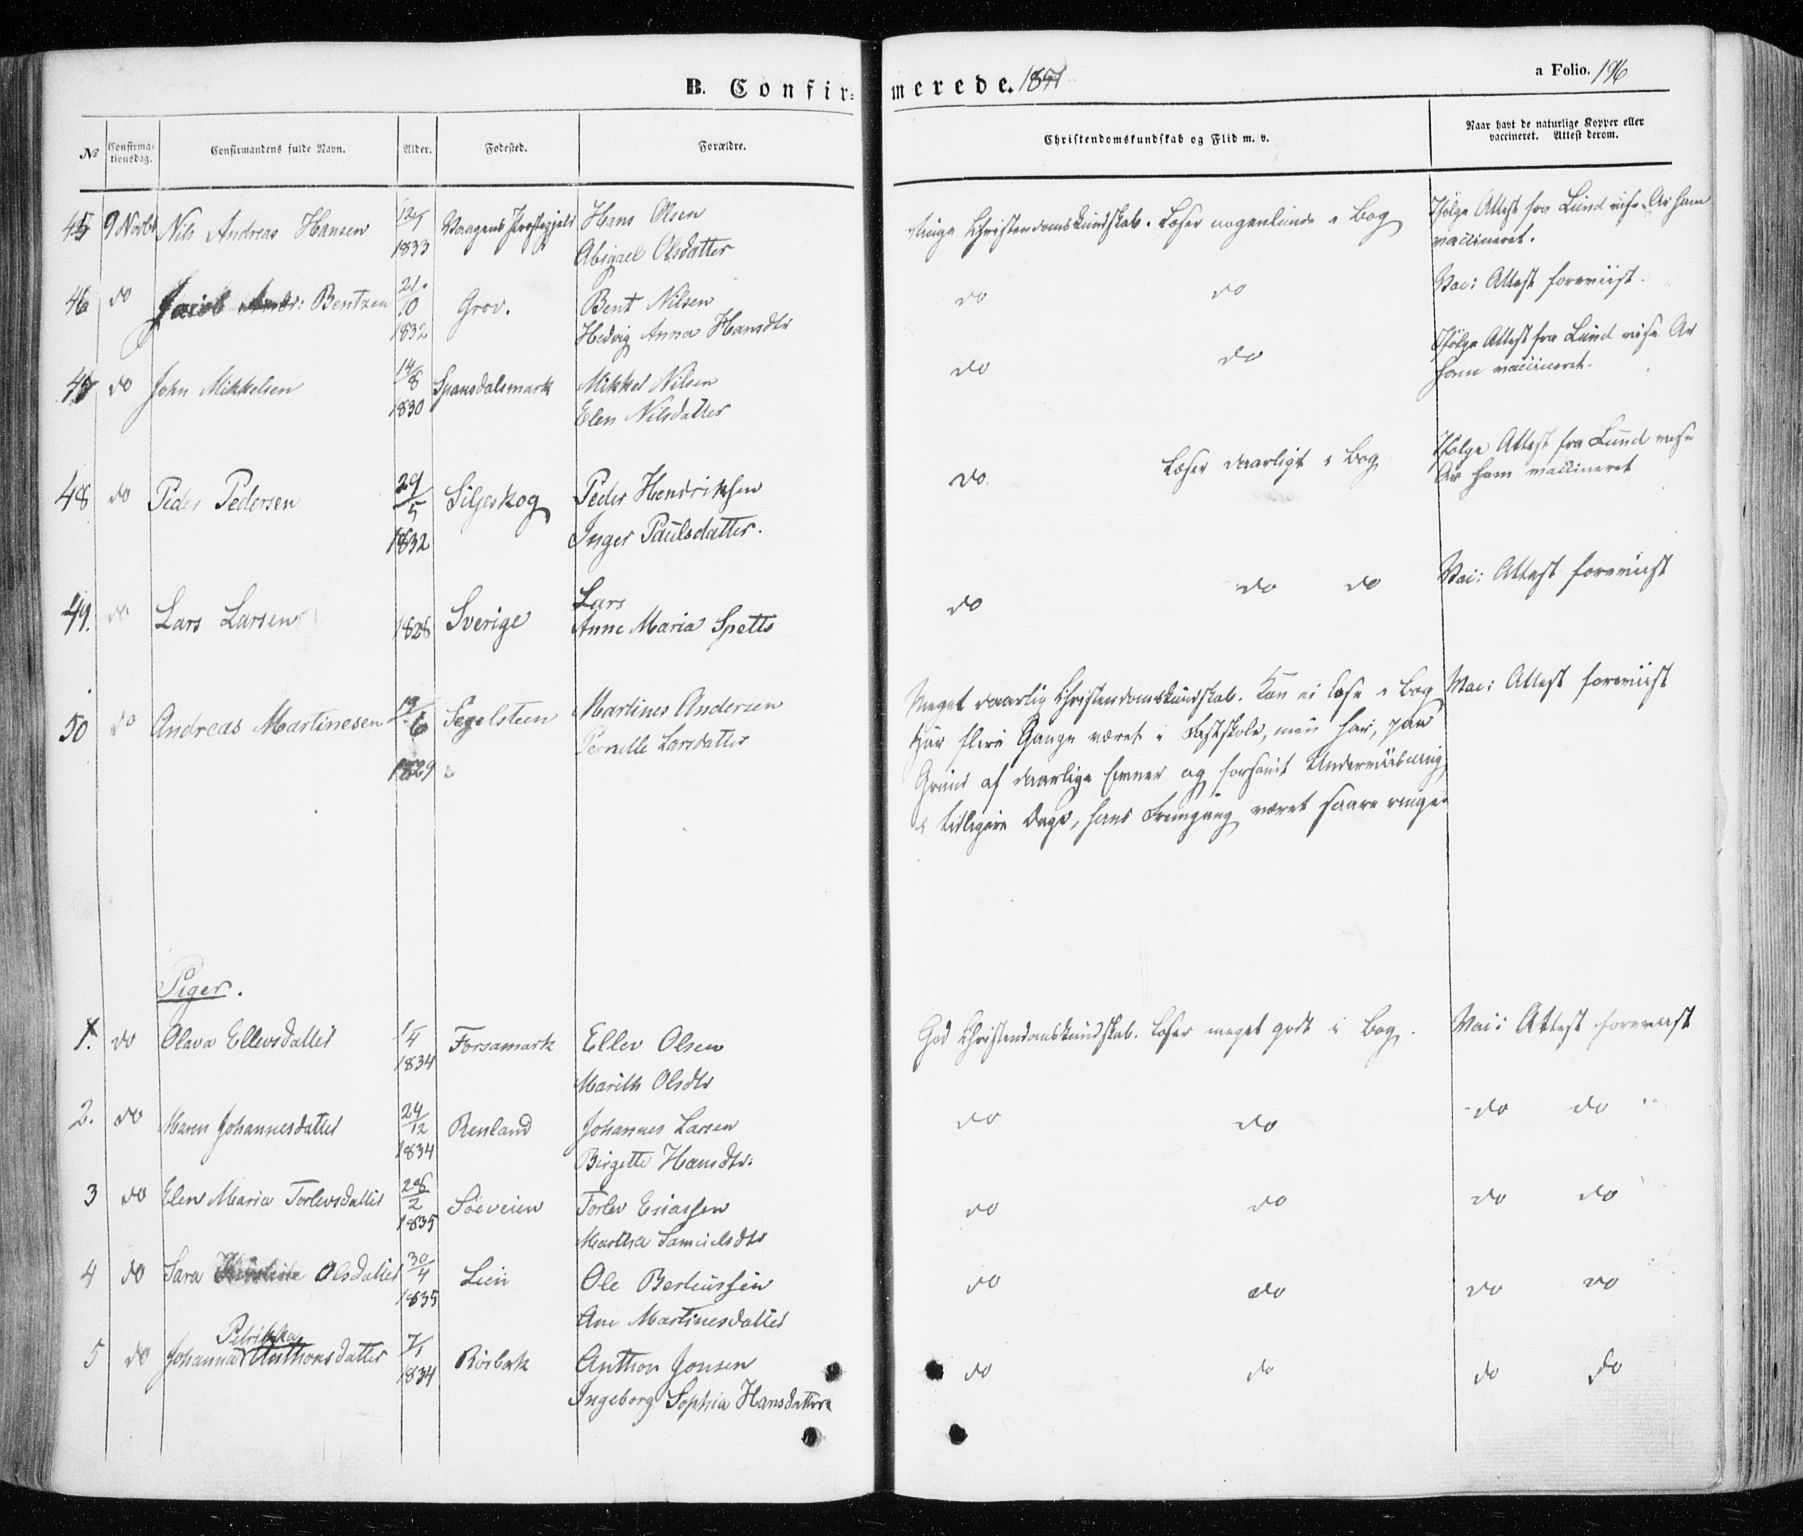 B. Confirmerede. 1851
a Folio. 196
No
Confirmationsdag.
Confirmandens fulde Navn.
Alder.
Fødested.
Forældre.
Christendomskundskab og Flid m. v.
Naar havt de naturlige Kopper eller
vaccineret. Attest derom.
45 9 Novbr Nils Andreas Hansen 12/1 1833 Vaagens Præstegjeld Hans Olsen
Abigael Olsdatter
Ringe Christendomskundskab. Læser nogenlunde i Bog
Ifølge Attest fra Lund vise Aar ham
vaccineret.
46 do Jacob Andr: Bentzen 21/10 1832 Grov. Bent Nilsen
Hedvig Anna Hansdtr
do do
Vac: Attest foreviist.
47 do John Mikkelsen 14/8 1830 Spansdalsmark Mikkel Nilsen
Elen Nilsdatter
do do
Ifølge Attest fra Lund vise Aar
ham vaccineret.
48 do Peder Pedersen 29/5 1832 Siljeskog Peder Hendriksen
Inger Paulsdatter.
do. Læser daarligt i Bog
Ifølge Attest fra Lund vise
Aar ham vaccineret
49. do Lars Larsen 1828 Sverige Lars
Anne Maria Spetts
do do do
Vac: Attest foreviist
50 do Andreas Martinesen 6 1829 Segelsteen Martines Andersen
Pernille Larsdatter
Meget daarlig Christendomskundskab. Kan ei læse i Bog
Har flere Gange været i Fastskole, men har, paa
Grund af daarlige Evner og forsømt Underviisning
i tidligere Dage, hans Fremgang været saare ringe.
Vac: Attest foreviist
Piger.
1. do Olava Ellevsdatter 1/4 1834 Forsamark Ellev Olsen
Marith Olsdtr
God Christendomskundskab. Læser meget godt i Bog.
Vac: Attest foreviist
2. do Maren Johannesdatter 24/12 1834 Renland Johannes Larsen
Birgette Hansdtr.
do do do do
3 do Elen Maria Torlevsdatter 28/2 1835 Søeveien Torlev Eriassen
Martha Samuelsdtr
do do do do
4 do Sara Olsdatter 30/4 1835 Lien Ole Berteussen
Ane Martinesdatter
do do do do
5 do Johanna Petrikka Anthonsdatter 7/1 1834 Rørbak Anthon Jonsen
Ingeborg Sophia Hansdatter
do do do do